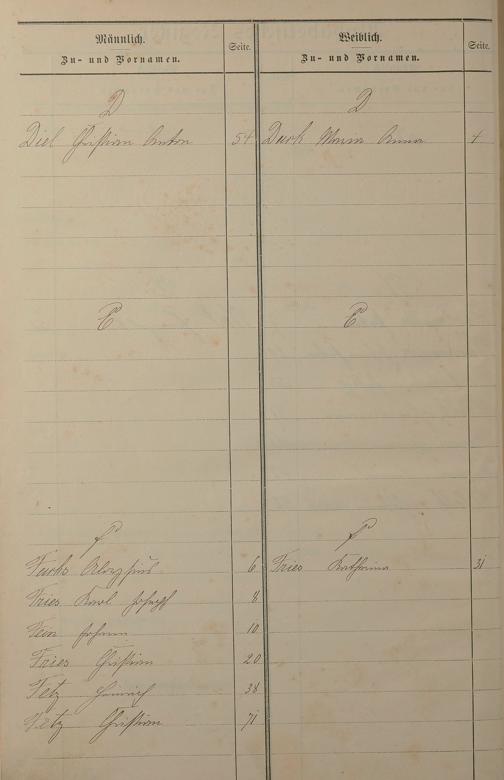 Männlich.
Zu- und Vornamen.
Seite.
Weiblich.
Zu- und Vornamen.
Seite.
D
D
Diel Christian Anton 54
Maria Anna 4
E
E
F
F
Fuchs Aloysius 6
Fries Katharina 31
Fries Karl Joseph 8
Johann 10
Fries Christian 20
Fetz Heinrich 38
Fetz Christian 71